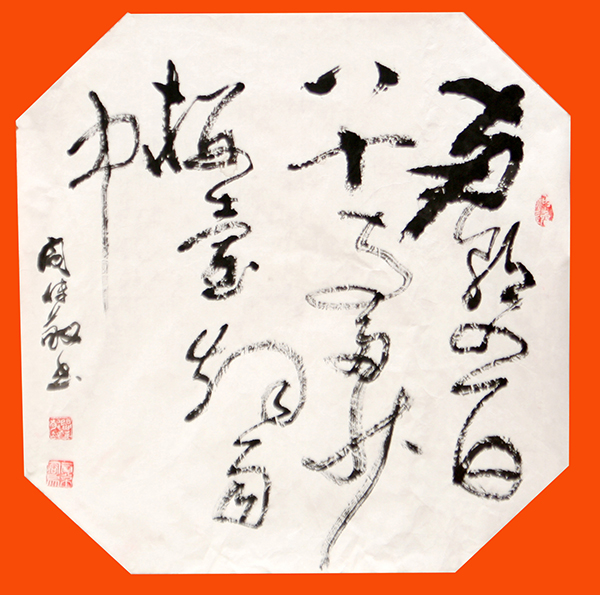 南朝四百
八十寺多少
楼臺烟雨
中
周 书